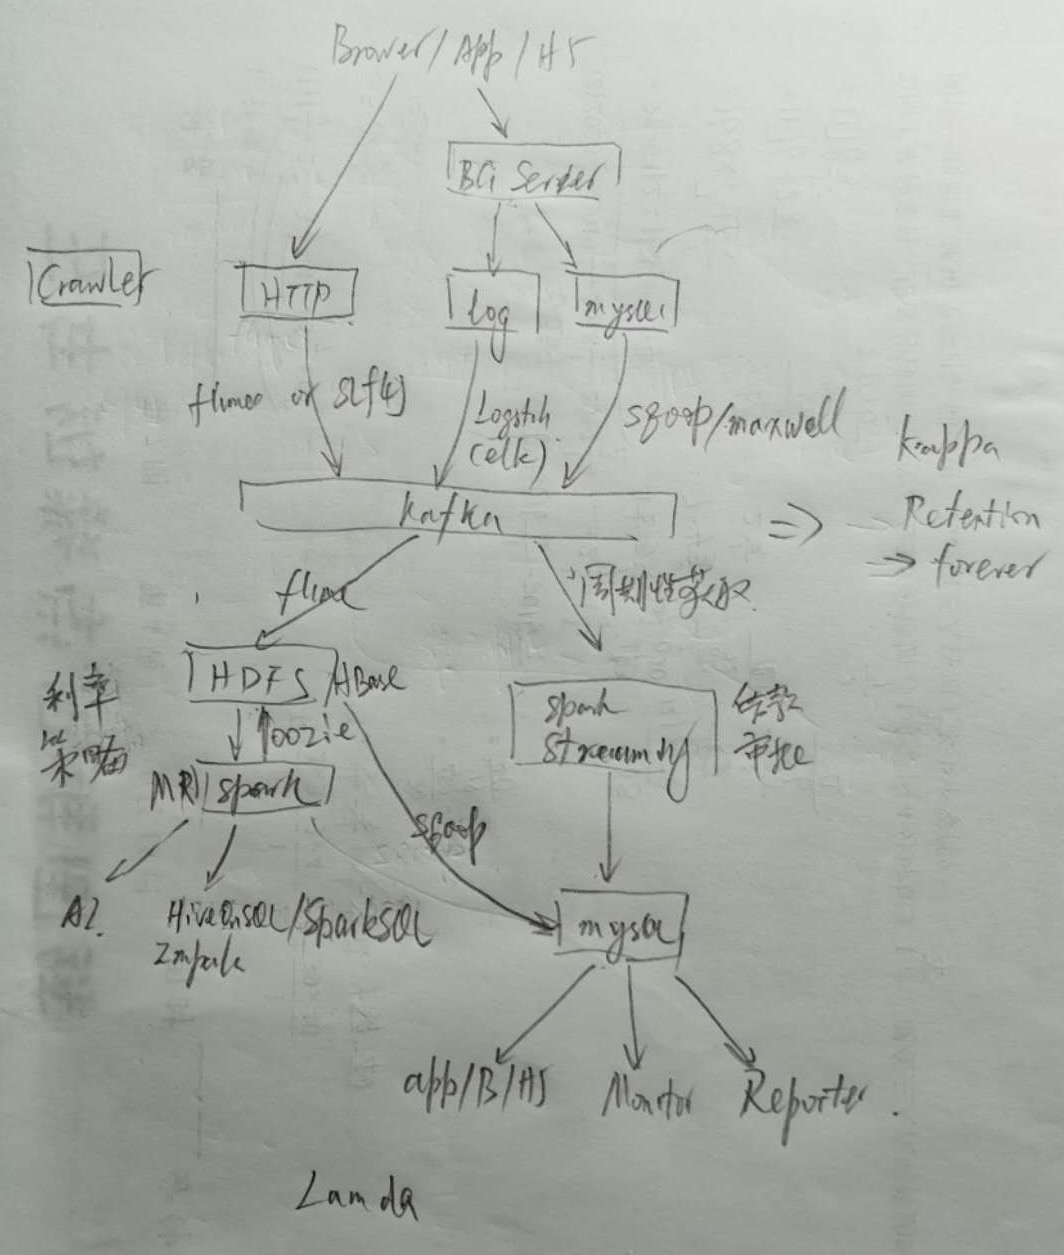 Brower/App/H5
BG Server
Crawler
HTTP
Log
mysql
flume or Slf4j
Logstsh
(elk)
sqoop/maxwell
kappa
kafka
=> Retention
→ forever
flume
周期性获取
HDFS/HBase
利率
策略
oozie
spark
Streaming
借款
审批
MR
spark
sqoop
AI.
HiveOnSQL/SparkSQL
Impala
mysql
app/B/H5
Monitor
Reporter.
Lamda